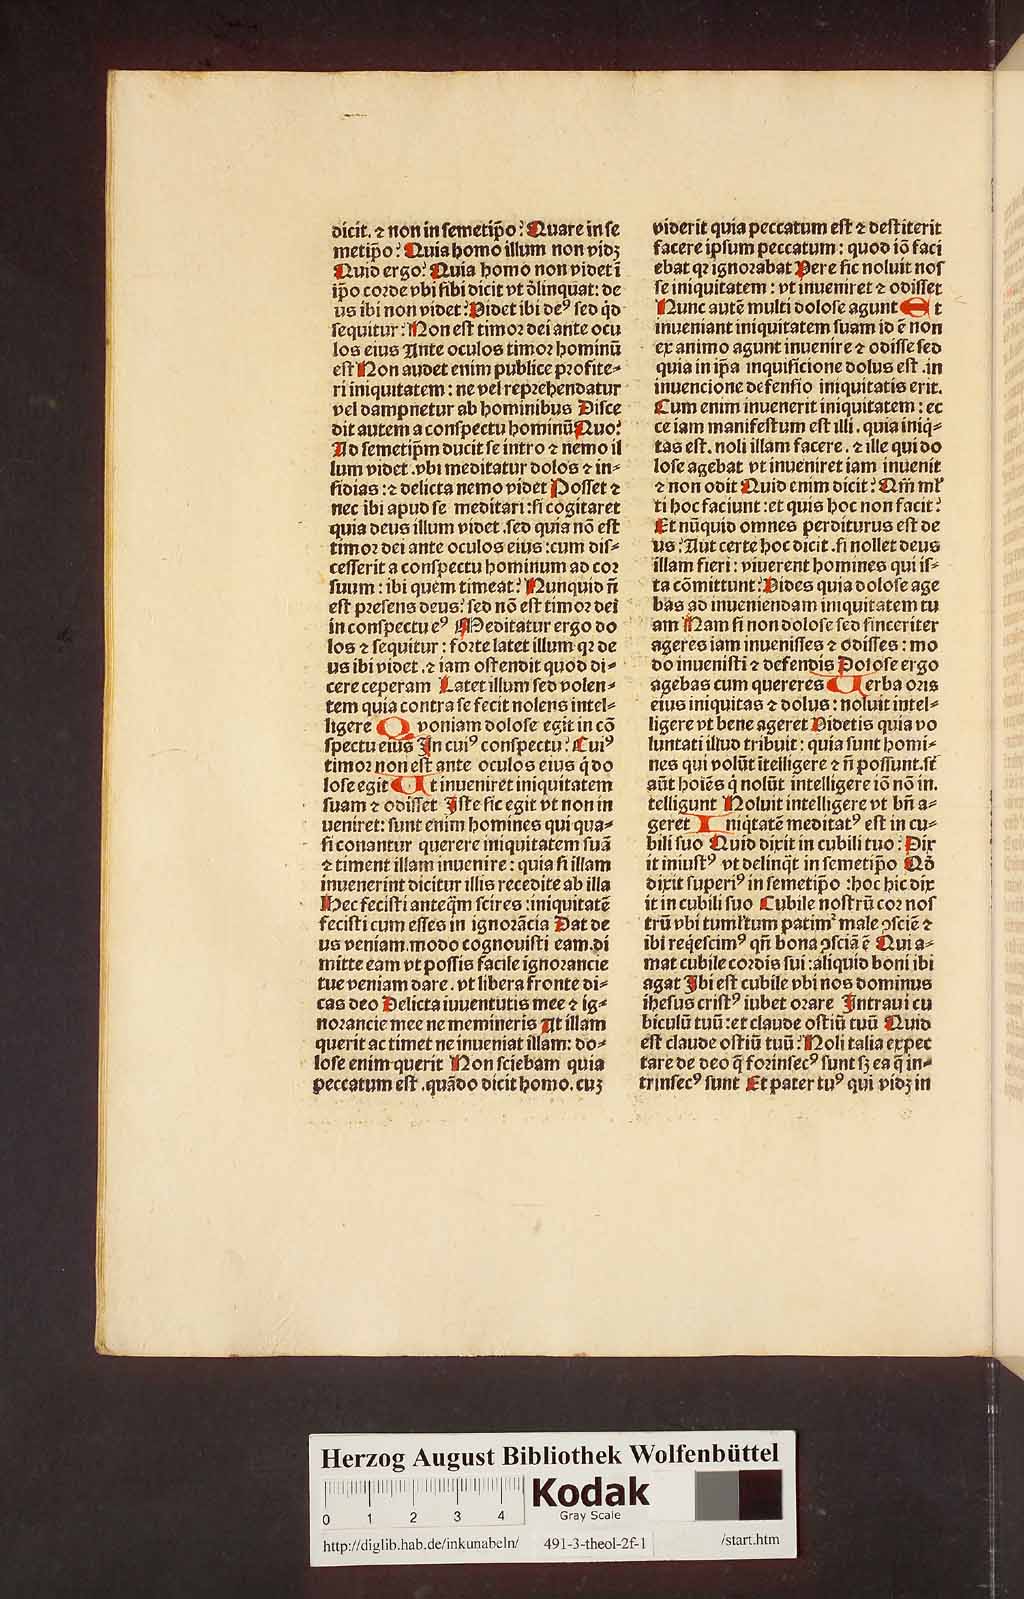 dicit. ⁊ non in semetip̄o? Quare in se
metip̄o? Quia homo illum non vidꝫ
Quid ergo? Quia homo non videt ī
ip̄o corde vbi sibi dicit vt d̄linquat: de
us ibi non videt? Videt ibi deꝰ sed q̇d
sequitur? Non est timor dei ante ocu
los eius Ante oculos timor hominū
est Non audet enim publice profite⸗
ri iniquitatem: ne vel reprehendatur
vel dampnetur ab hominibus Disce
dit autem a conspectu hominū Quo?
Ad semetip̄m ducit se intro ⁊ nemo il
lum videt .vbi meditatur dolos ⁊ in⸗
sidias :⁊ delicta nemo videt Posset ⁊
nec ibi apud se meditari :si cogitaret
quia deus illum videt .sed quia nō est
timor dei ante oculos eius :cum dis⸗
cesserit a conspectu hominum ad cor
suum: ibi quem timeat? Nunquid n̄
est presens deus? sed nō est timor dei
in conspectu eꝰ Meditatur ergo do
los ⁊ sequitur: forte latet illum qꝛ de
us ibi videt .⁊ iam ostendit quod di⸗
cere ceperam Latet illum sed volen⸗
tem quia contra se fecit nolens intel⸗
ligere Quoniam dolose egit in cō
spectu eius In cuiꝰ conspectu? Cuiꝰ
timor non est ante oculos eius q̇ do
lose egit Ut inueniret iniquitatem
suam ⁊ odisset Iste sic egit vt non in
ueniret: sunt enim homines qui qua⸗
si conantur querere iniquitatem suā
⁊ timent illam inuenire: quia si illam
inuenerint dicitur illis recedite ab illa
Hec fecisti anteq̄m scires :iniquitatē
fecisti cum esses in ignorācia Dat de
us veniam. modo cognouisti eam. di
mitte eam vt possis facile ignorancie
tue veniam dare. vt libera fronte di⸗
cas deo Delicta iuuentutis mee ⁊ ig⸗
norancie mee ne memineris At illam
querit ac timet ne inueniat illam: do⸗
lose enim querit Non sciebam quia
peccatum est .quādo dicit homo. cuꝫ
viderit quia peccatum est ⁊ destiterit
facere ipsum peccatum: quod iō faci
ebat qꝛ ignorabat Vere sic noluit nos
se iniquitatem: vt inueniret ⁊ odisset
Nunc autē multi dolose agunt Et
inueniant iniquitatem suam id ē non
ex animo agunt inuenire ⁊ odisse sed
quia in ip̄a inquisicione dolus est .in
inuencione defensio iniquitatis erit.
Cum enim inuenerit iniquitatem: ec
ce iam manifestum est illi. quia iniq̇⸗
tas est. noli illam facere. ⁊ ille qui do
lose agebat vt inueniret iam inuenit
⁊ non odit Quid enim dicit? Qm̄ ml̄
ti hoc faciunt :et quis hoc non facit?
Et nūquid omnes perditurus est de
us? Aut certe hoc dicit .si nollet deus
illam fieri: viuerent homines qui is⸗
ta cōmittunt? Vides quia dolose age
bas ad inueniendam iniquitatem tu
am Nam si non dolose sed sinceriter
ageres iam inuenisses ⁊ odisses: mo
do inuenisti ⁊ defendis Dolose ergo
agebas cum quereres Uerba oris
eius iniquitas ⁊ dolus: noluit intel⸗
ligere vt bene ageret Videtis quia vo
luntati illud tribuit: quia sunt homi⸗
nes qui volūt ītelligere ⁊ n̄ possunt. st̄
aūt hoīes q̇ nolūt intelligere iō nō in.
telligunt Noluit intelligere vt bn̄ a⸗
geret Iniq̇tatē meditatꝰ est in cu⸗
bili suo Quid dixit in cubili tuo? Dix
it iniustꝰ vt delinq̄t in semetip̄o Qd̄
dixit superiꝰ in semetip̄o :hoc hic dix
it in cubili suo Cubile nostrū cor nos
trū vbi tumltum patimᷣ male ꝯsciē ⁊
ibi req̇escimꝰ qn̄ bona ꝯsciā ē Qui a⸗
mat cubile cordis sui :aliquid boni ibi
agat Ibi est cubile vbi nos dominus
ihesus cristꝰ iubet orare Intra in cu
biculū tuū :et claude ostiū tuū Quid
est claude ostiū tuū? Noli talia expec
tare de deo q̄ forinsecꝰ sunt sꝫ ea q̄ in⸗
trinsecꝰ sunt Et pater tuꝰ qui vidꝫ in
Herzog August Bibliothek Wolfenbüttel
0 1 2 3 4
Kodak
Gray Scale
http://diglib.hab.de/inkunabeln/ 491-3-theol-2f-1 /start.htm